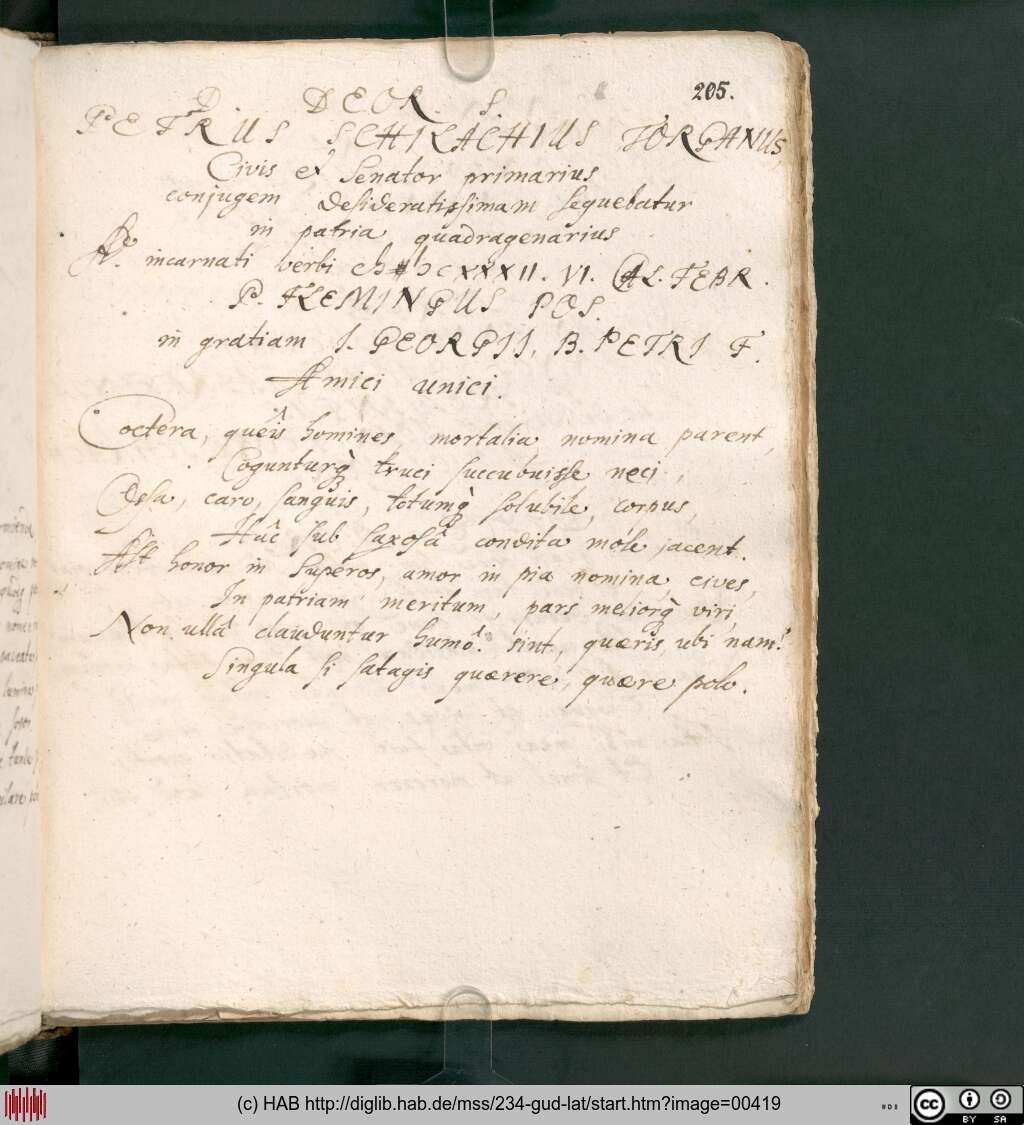 205.
D. DEOR. S.
PETRUS SCHILACHIUS TORGANUS,
Civis et Senator primarius
conjugem desideratissimam sequebatur
in patria quadragenarius
incarnati verbi XXXII. VI. CAL. FEBR.
P. FLEMINGUS POS.
in gratiam J. GEORGII. B. PETRI F.
Amici unici.
Coetera, quêis homines mortalia nomina parent,
Cogunturq̀ truci succubuisse neci,
Ossa, caro, sanguis, totumq̀ solubile corpus,
Hâc sub saxosâ condita môle jacent.
Ast honor in Superos, amor in pia nomina, cives,
In patriam meritum, pars meliorq̀ viri,
Non ullâ clauduntur humô. sint, quæris, ubi nam?
Singula si satagis quærere, quære polo.
(c) HAB http://diglib.hab.de/mss/234-gud-lat/start.htm?image=00419
cc BY SA